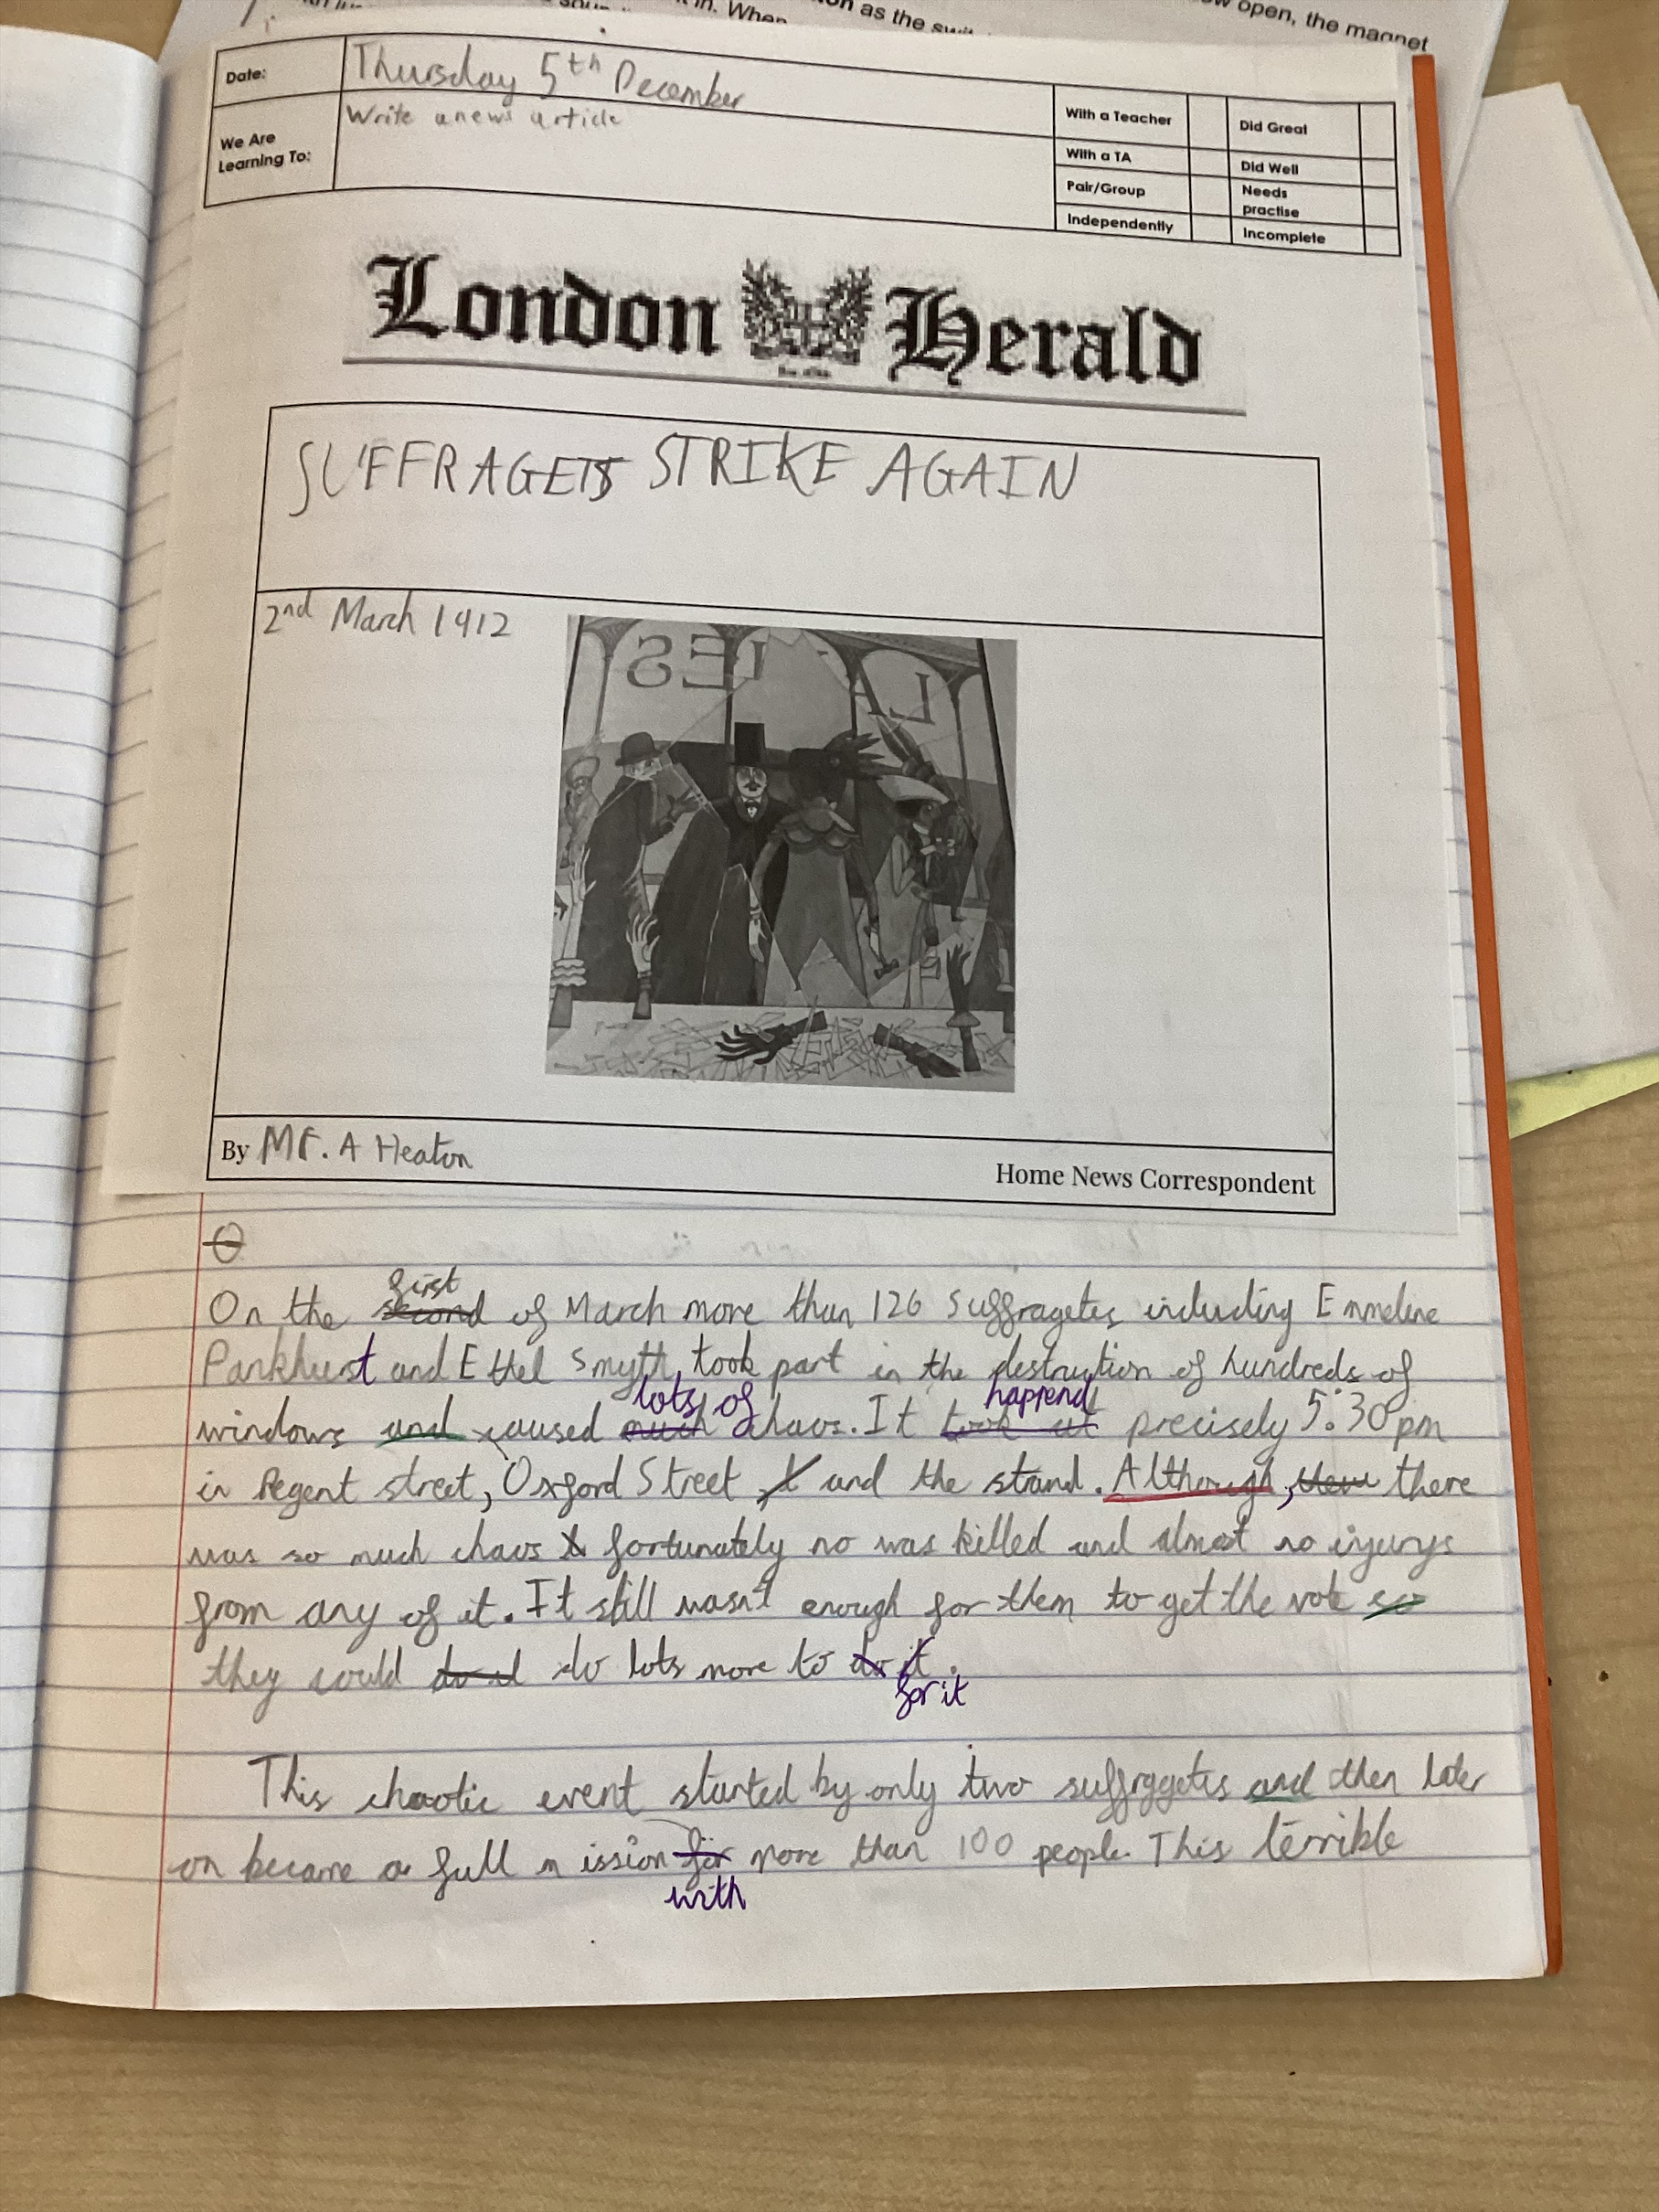 it in. When
on as the swit
open, the magnet
Date:
Thursday 5th December
We Are Learning To:
Write a news article
With a Teacher
Did Great
With a TA
Did Well
Pair/Group
Needs practise
Independently
Incomplete
London Herald
SUFFRAGETS STRIKE AGAIN
2nd March 1912
LA IES
By Mr. A Heaton
Home News Correspondent
O
first
On the second of March more than 126 suffragetes including Emmeline
Pankhurst and Ethel Smyth, took part in the destruction of hundreds of
lots of happend
windows and caused much chaos. It took at precisely 5:30pm
in Regent street, Oxford Street and the strand. Although, there
was so much chaos fortunately no was killed and almost no injurys
from any of it. It still wasn't enough for them to get the vote so
they would do lots more to do it.
for it
This chaotic event started by only two suffragetes and then later
on became a full mission for more than 100 people. This terrible
with